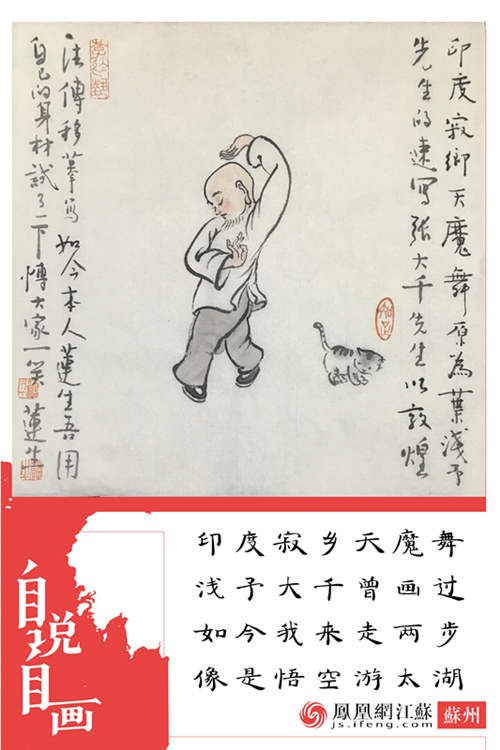 印度寂鄉天魔舞原為葉淺予
先生的速寫張大千先生以敦煌
法傳移摹寫如今本人蓮生吾用
自己的身材試了一下愽大家一笑 蓮生
自说自画
印度寂乡天魔舞
浅予大千曾画过
如今我来走两步
像是悟空游太湖
鳳凰網江蘇 蘇州
js.ifeng.com